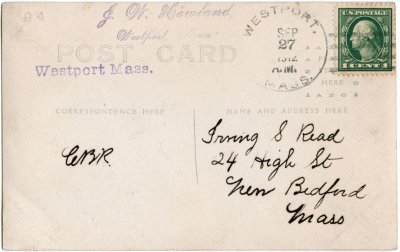 84
J. W. Howland,
Westport, Mass.
POST CARD
Westport Mass.
WESTPORT,
SEP
27
1912
A.M.
MASS.
U.S. POSTAGE
1 CENT 1
CORRESPONDENCE HERE
NAME AND ADDRESS HERE
CBR.
Irving S Read
24 High St
New Bedford
Mass